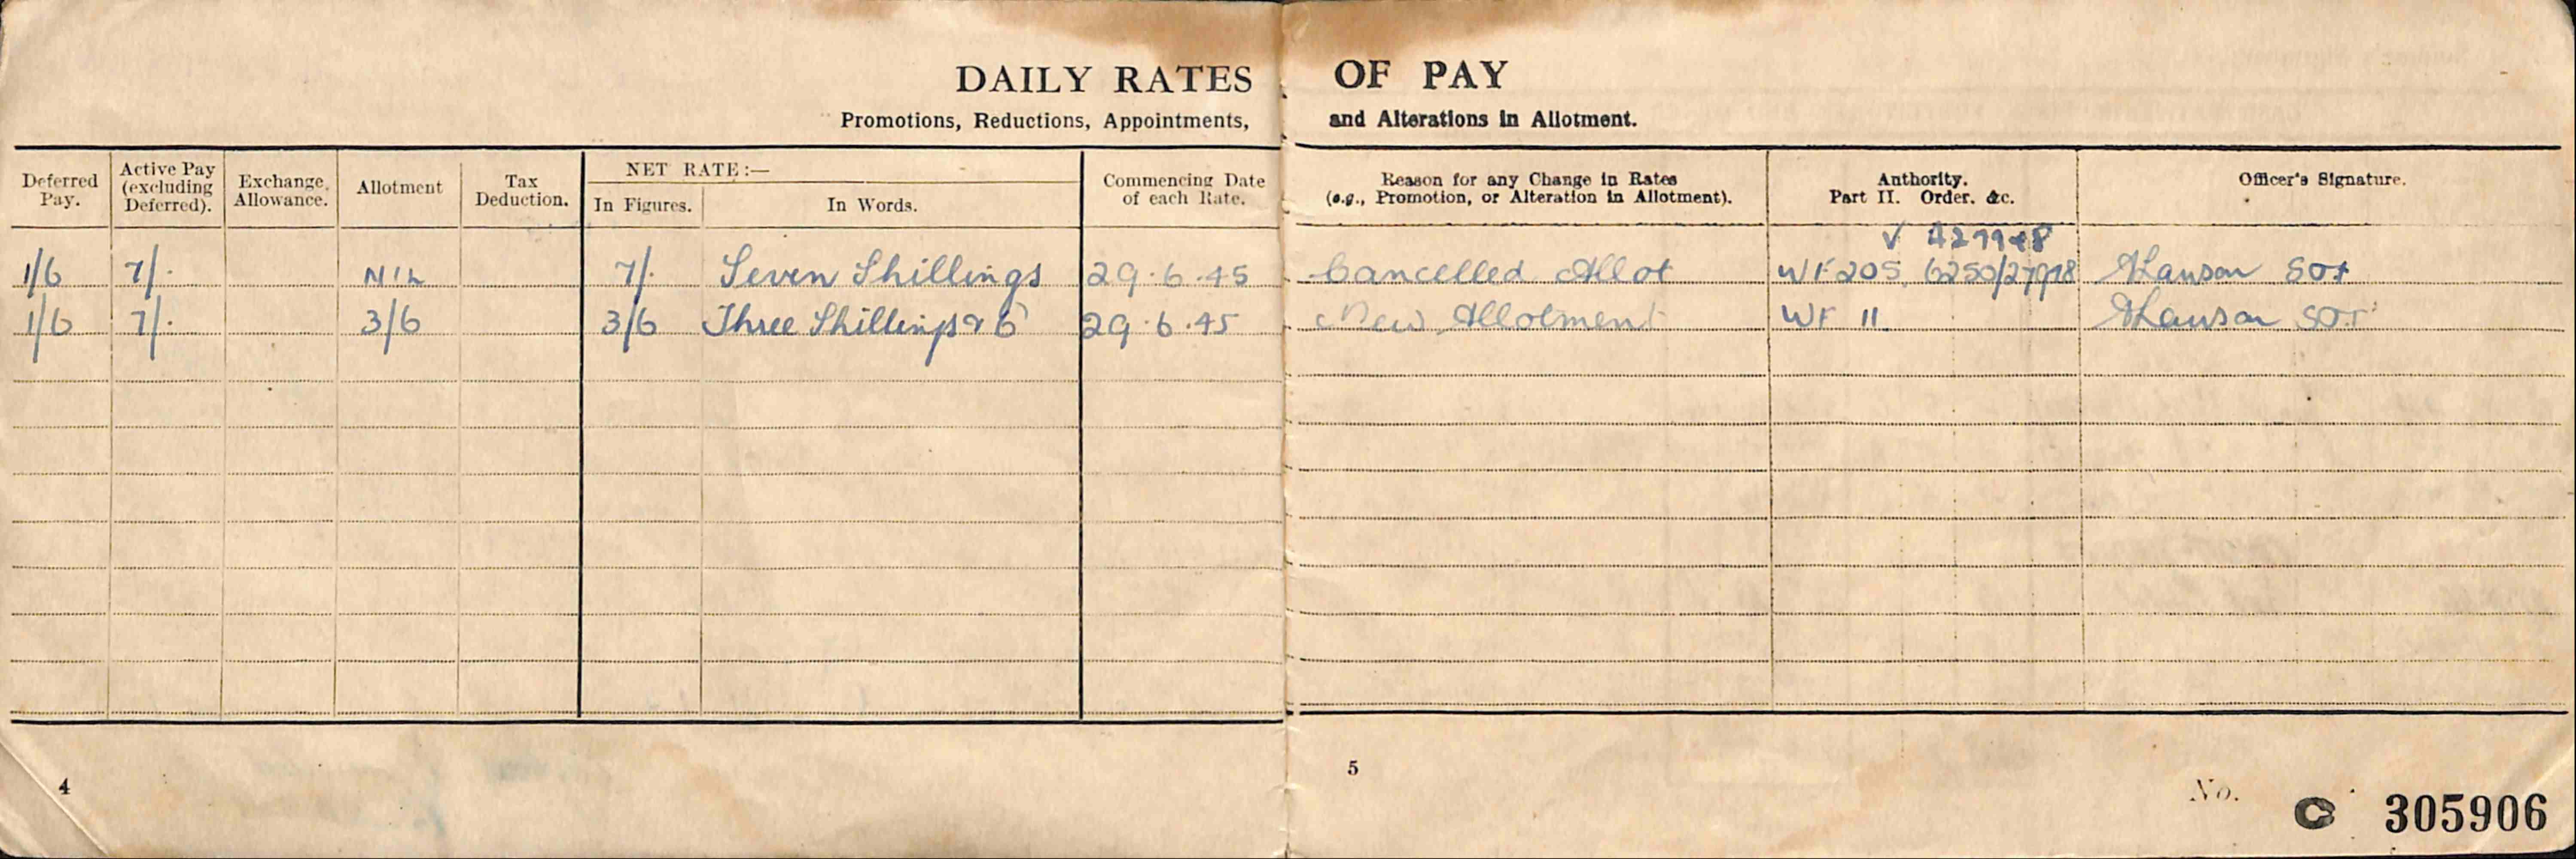 DAILY RATES OF PAY
Promotions, Reductions, Appointments, and Alterations in Allotment.
Deferred Pay. Active Pay (excluding Deferred). Exchange Allowance. Allotment Tax Deduction. NET RATE:— In Figures. In Words. Commencing Date of each Rate. Reason for any Change in Rates (e.g., Promotion, or Alteration in Allotment). Authority. Part II. Order. &c. Officer's Signature.
1/6 7/. NIL 7/. Seven Shillings 29.6.45 Cancelled Allot WF 205 6250/27918 SGT
1/6 7/. 3/6 3/6 Three Shillings & 6 29.6.45 New Allotment WF 11 SGT
4
5
No. C 305906